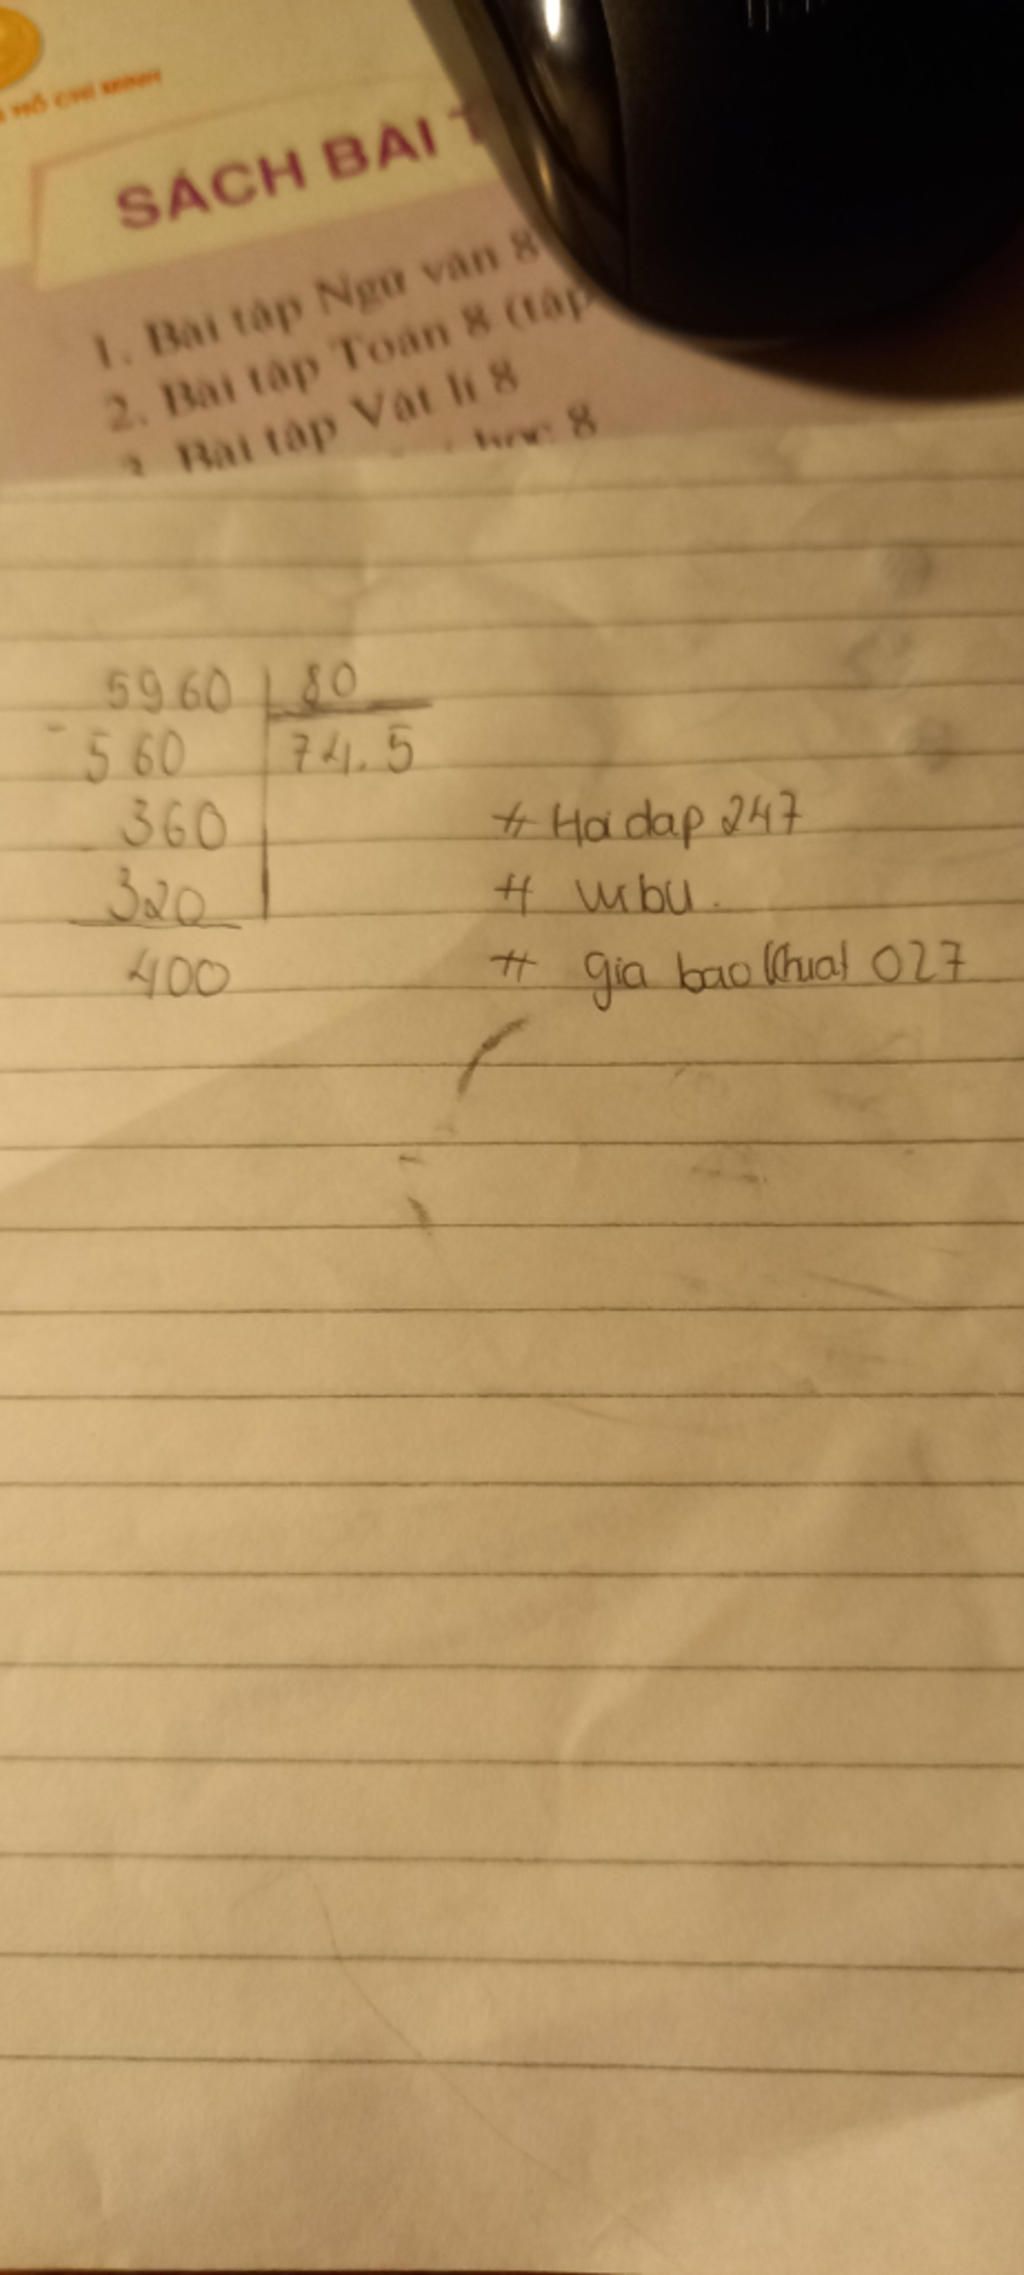 HỒ CHÍ MINH
SÁCH BÀI
1. Bài tập Ngữ văn 8
2. Bài tập Toán 8 (tập
3. Bài tập Vật lí 8
học 8
5960 80
- 560 74.5
360
320
400
# Hoidap 247
#
# gia bao khua 027